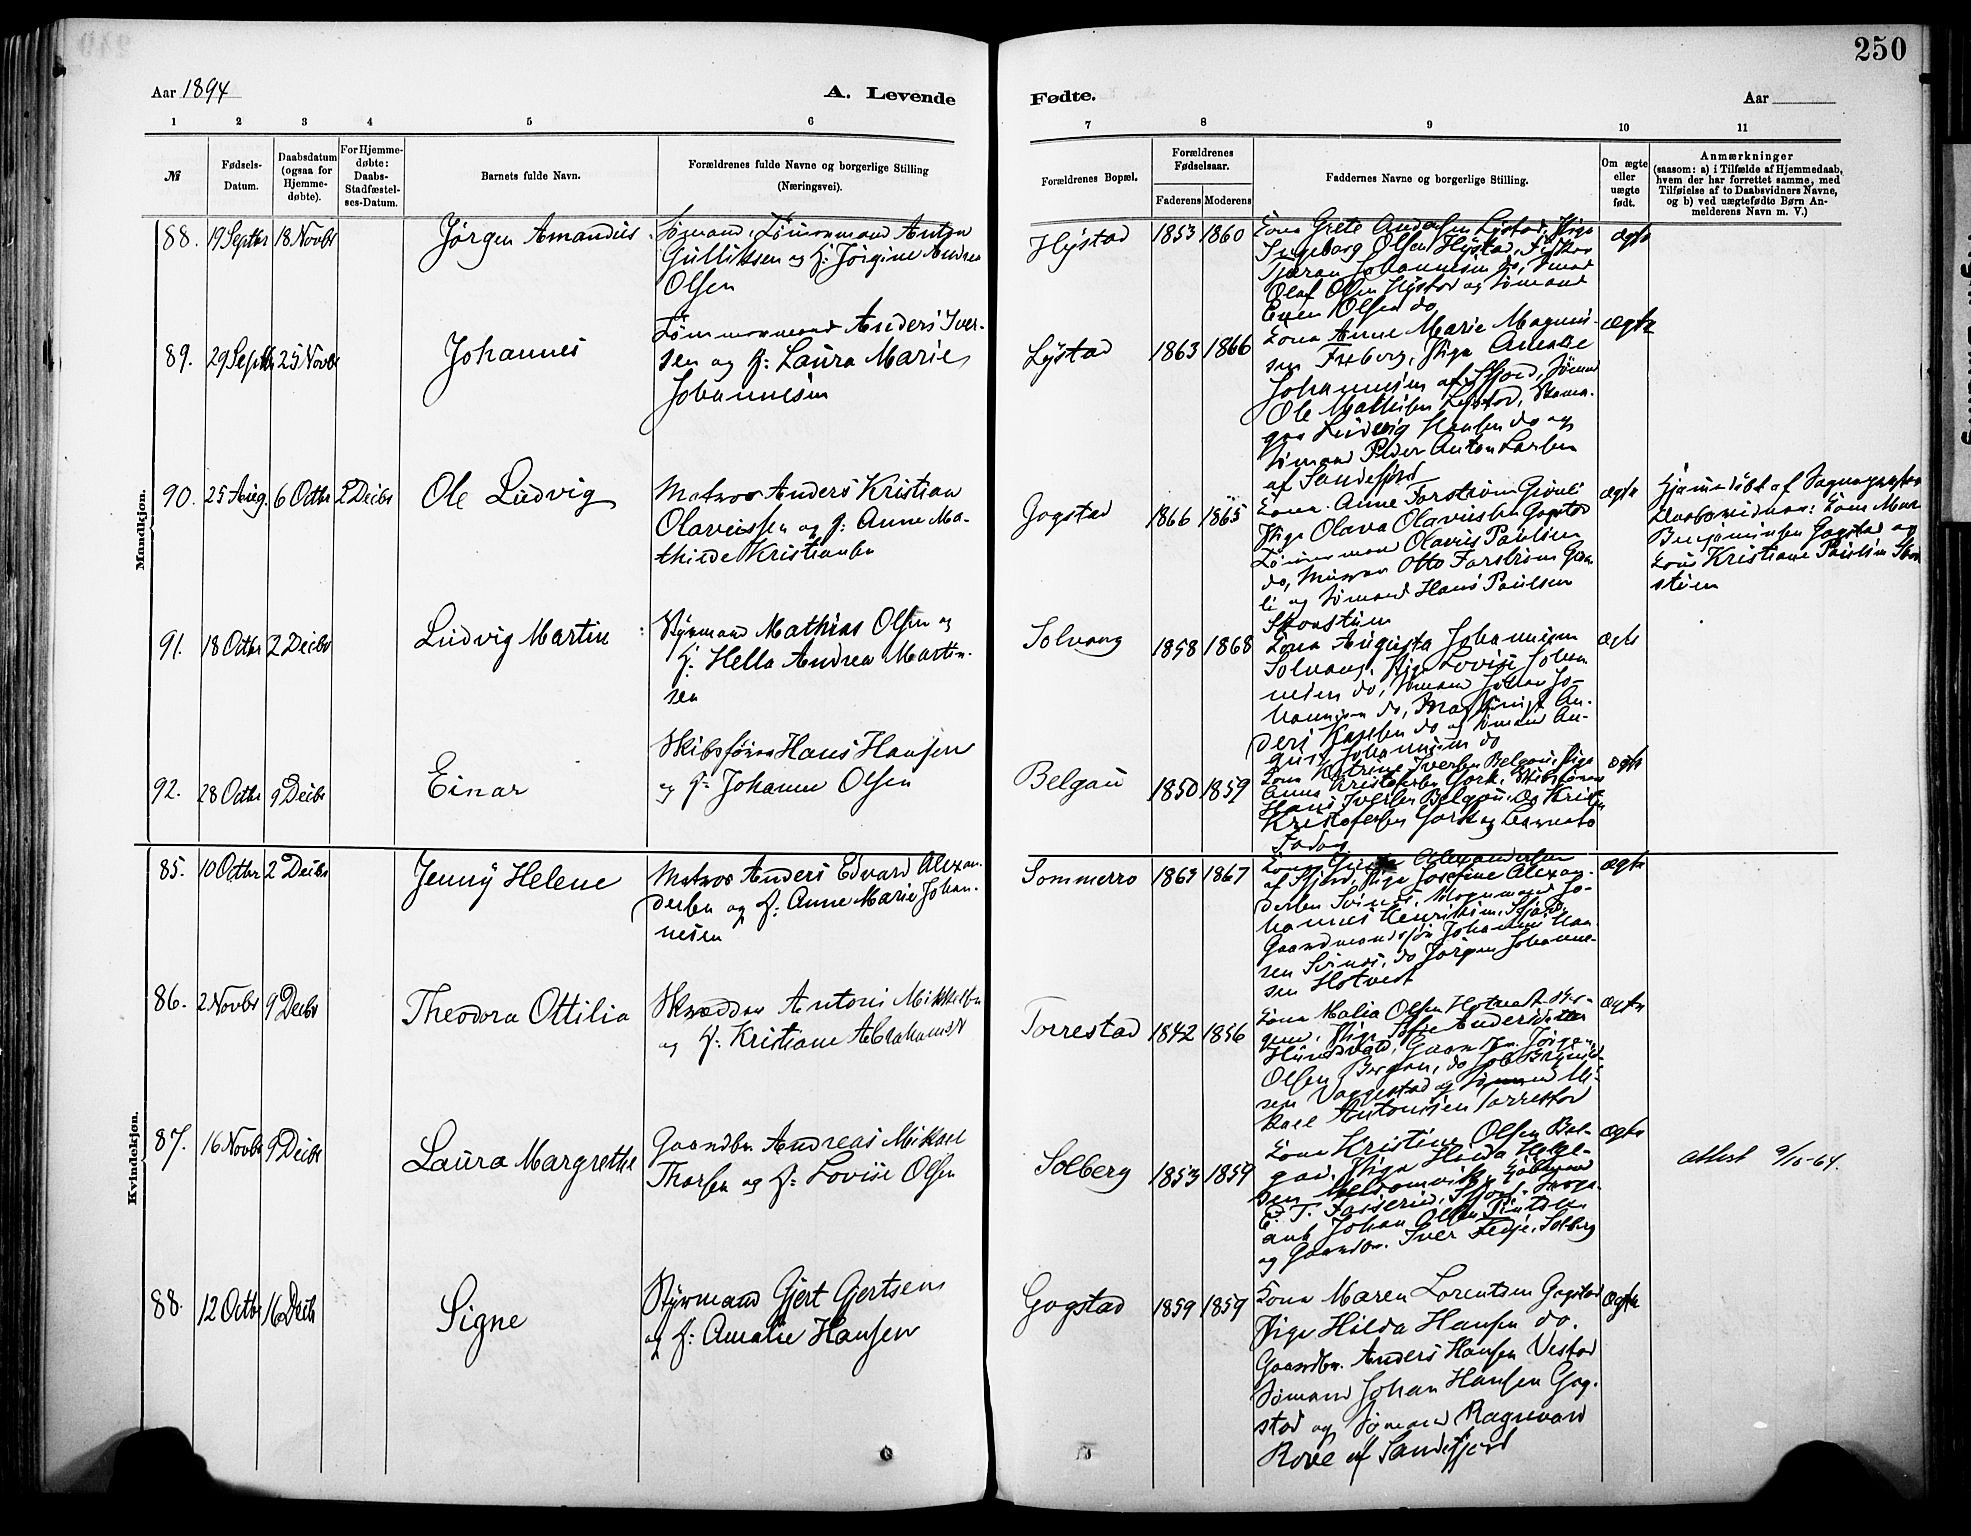 250
Aar 1894
A. Levende
Fødte.
Aar
1 2 3 4 5 6 7 8 9 10 11
№
Fødsels-
Datum.
Daabsdatum
(ogsaa for
Hjemme-
døbte).
For Hjemme-
døbte:
Daabs-
Stadfæstel-
ses-Datum.
Barnets fulde Navn.
Forældrenes fulde Navne og borgerlige Stilling
(Næringsvei).
Forældrenes Bopæl.
Forældrenes
Fødselsaar.
Faderens Moderens
Faddernes Navne og borgerlige Stilling.
Om ægte
eller
uægte
født.
Anmærkninger
(saasom: a) i Tilfælde af Hjemmedaab,
hvem der har forrettet samme, med
Tilføielse af to Daabsvidners Navne,
og b) ved uægtefødte Børn An-
melderens Navn m. V.)
Mandkjøn.
88. 19 Septbr 18 Novbr
Jørgen Amandus
Sømand, Tømmermand Anton
Gulliksen og H: Jørgine Andrea
Olsen
Hystad
1853 1860
Kona Grete Andersen Lystad, Pige
Ingeborg Olsen Hystad, Fisker
Johannesen do, Sømand
Olaf Olsen Hystad og Sømand
Even Olsen do
ægte
89. 29 Septbr 25 Novbr
Johannes
Tømmermand Anders Iver-
sen og H: Laura Marie
Johannesen
Lystad
1863 1866
Kona Anne Marie Magnus-
sen Freberg, Pige
Johannesen af Sfjord, Sømand
Ole Mathisen Lystad,
Ludvig Hansen do og
Sømand Peder Anton Larsen
af Sandefjord
ægte
90. 25 Aug. 6 Octbr 2 Decbr
Ole Ludvig
Matros Anders Kristian
Olaviussen og H: Anne Ma-
thilde Kristiansen
Gogstad
1866 1865
Kona Anne Forstrøm
Pige Olava Olaviussen Gogstad
Tømmermand Olavus Paulsen
do, Otto Forstrøm
og Sømand Hans Paulsen
ægte
Hjemmedøbt af Sognepresten
Daabsvidner: Kone
Benjaminsen Gogstad og
Kone Kristiane Paulsen
91. 18 Octbr 2 Decbr
Ludvig Martin
Styrmand Mathias Olsen og
H: Hella Andrea Martin-
sen
Solvang
1858 1868
Kona Augusta Johannesen
Solvang, Pige Lovise Johan-
nesen do, Sømand Johan Jo-
hannesen do, An-
ders do og Sømand Au-
gust Johannesen do
ægte
92. 28 Octbr 9 Decbr
Einar
Skibsfører Hans Hansen
og H: Johanne Olsen
Belgau
1850 1859
Kona Katrine Iversen Belgau, Pige
Anna Kristofersen Gork, Skibsfører
Hans Iversen Belgau, do
Kristofersen Gork og Barnets
Fader
ægte
Kvindekjøn.
85. 10 Octbr 2 Decbr
Jenny Helene
Matros Anders Edvard Alexan-
dersen og H: Anne Marie Johan-
nesen
Sommerro
1863 1867
Kona Alexandersen
af Sfjord, Pige Josefine Alexan-
dersen Svines, Jo-
hannes Henriksen, Sfjord,
Gaardmandssøn Johannes Han-
sen Svines, do Jørgen Johanne-
sen Hotvedt
ægte
86. 2 Novbr 9 Decbr
Theodora Ottilia
Skrædder Antoni Mikkelsen
og H: Kristiane Abrahamsdt
Torrestad
1842 1856
Kona Malia Olsen Hotvedt
Pige Sofie Andersdatter
Jørgen
Olsen Bergan, do
sen og Sømand Mi-
kael Antonisen Torrestad
ægte
87. 16 Novbr 9 Decbr
Laura Margrethe
Gaardbr. Andreas Mikael
Thorsen og H: Lovise Olsen
Solberg
1853 1859
Kona Kristine Olsen Bel-
gau, Pige Hilda Helge-
sen
E. T. Sfjord,
Johan Olsen
og Gaardbr. Iver Solberg
ægte
attest 9/10-64.
88. 12 Octbr 16 Decbr
Signe
Styrmand Gjert Gjertsen
og H: Amalie Hansen
Gogstad
1859 1859
Kona Maren Lorentsen Gogstad
Pige Hilda Hansen do.
Gaardbr. Anders Hansen Vestad
Sømand Johan Hansen Gog-
stad og Sømand Ragnvard
Rove af Sandefjord
ægte